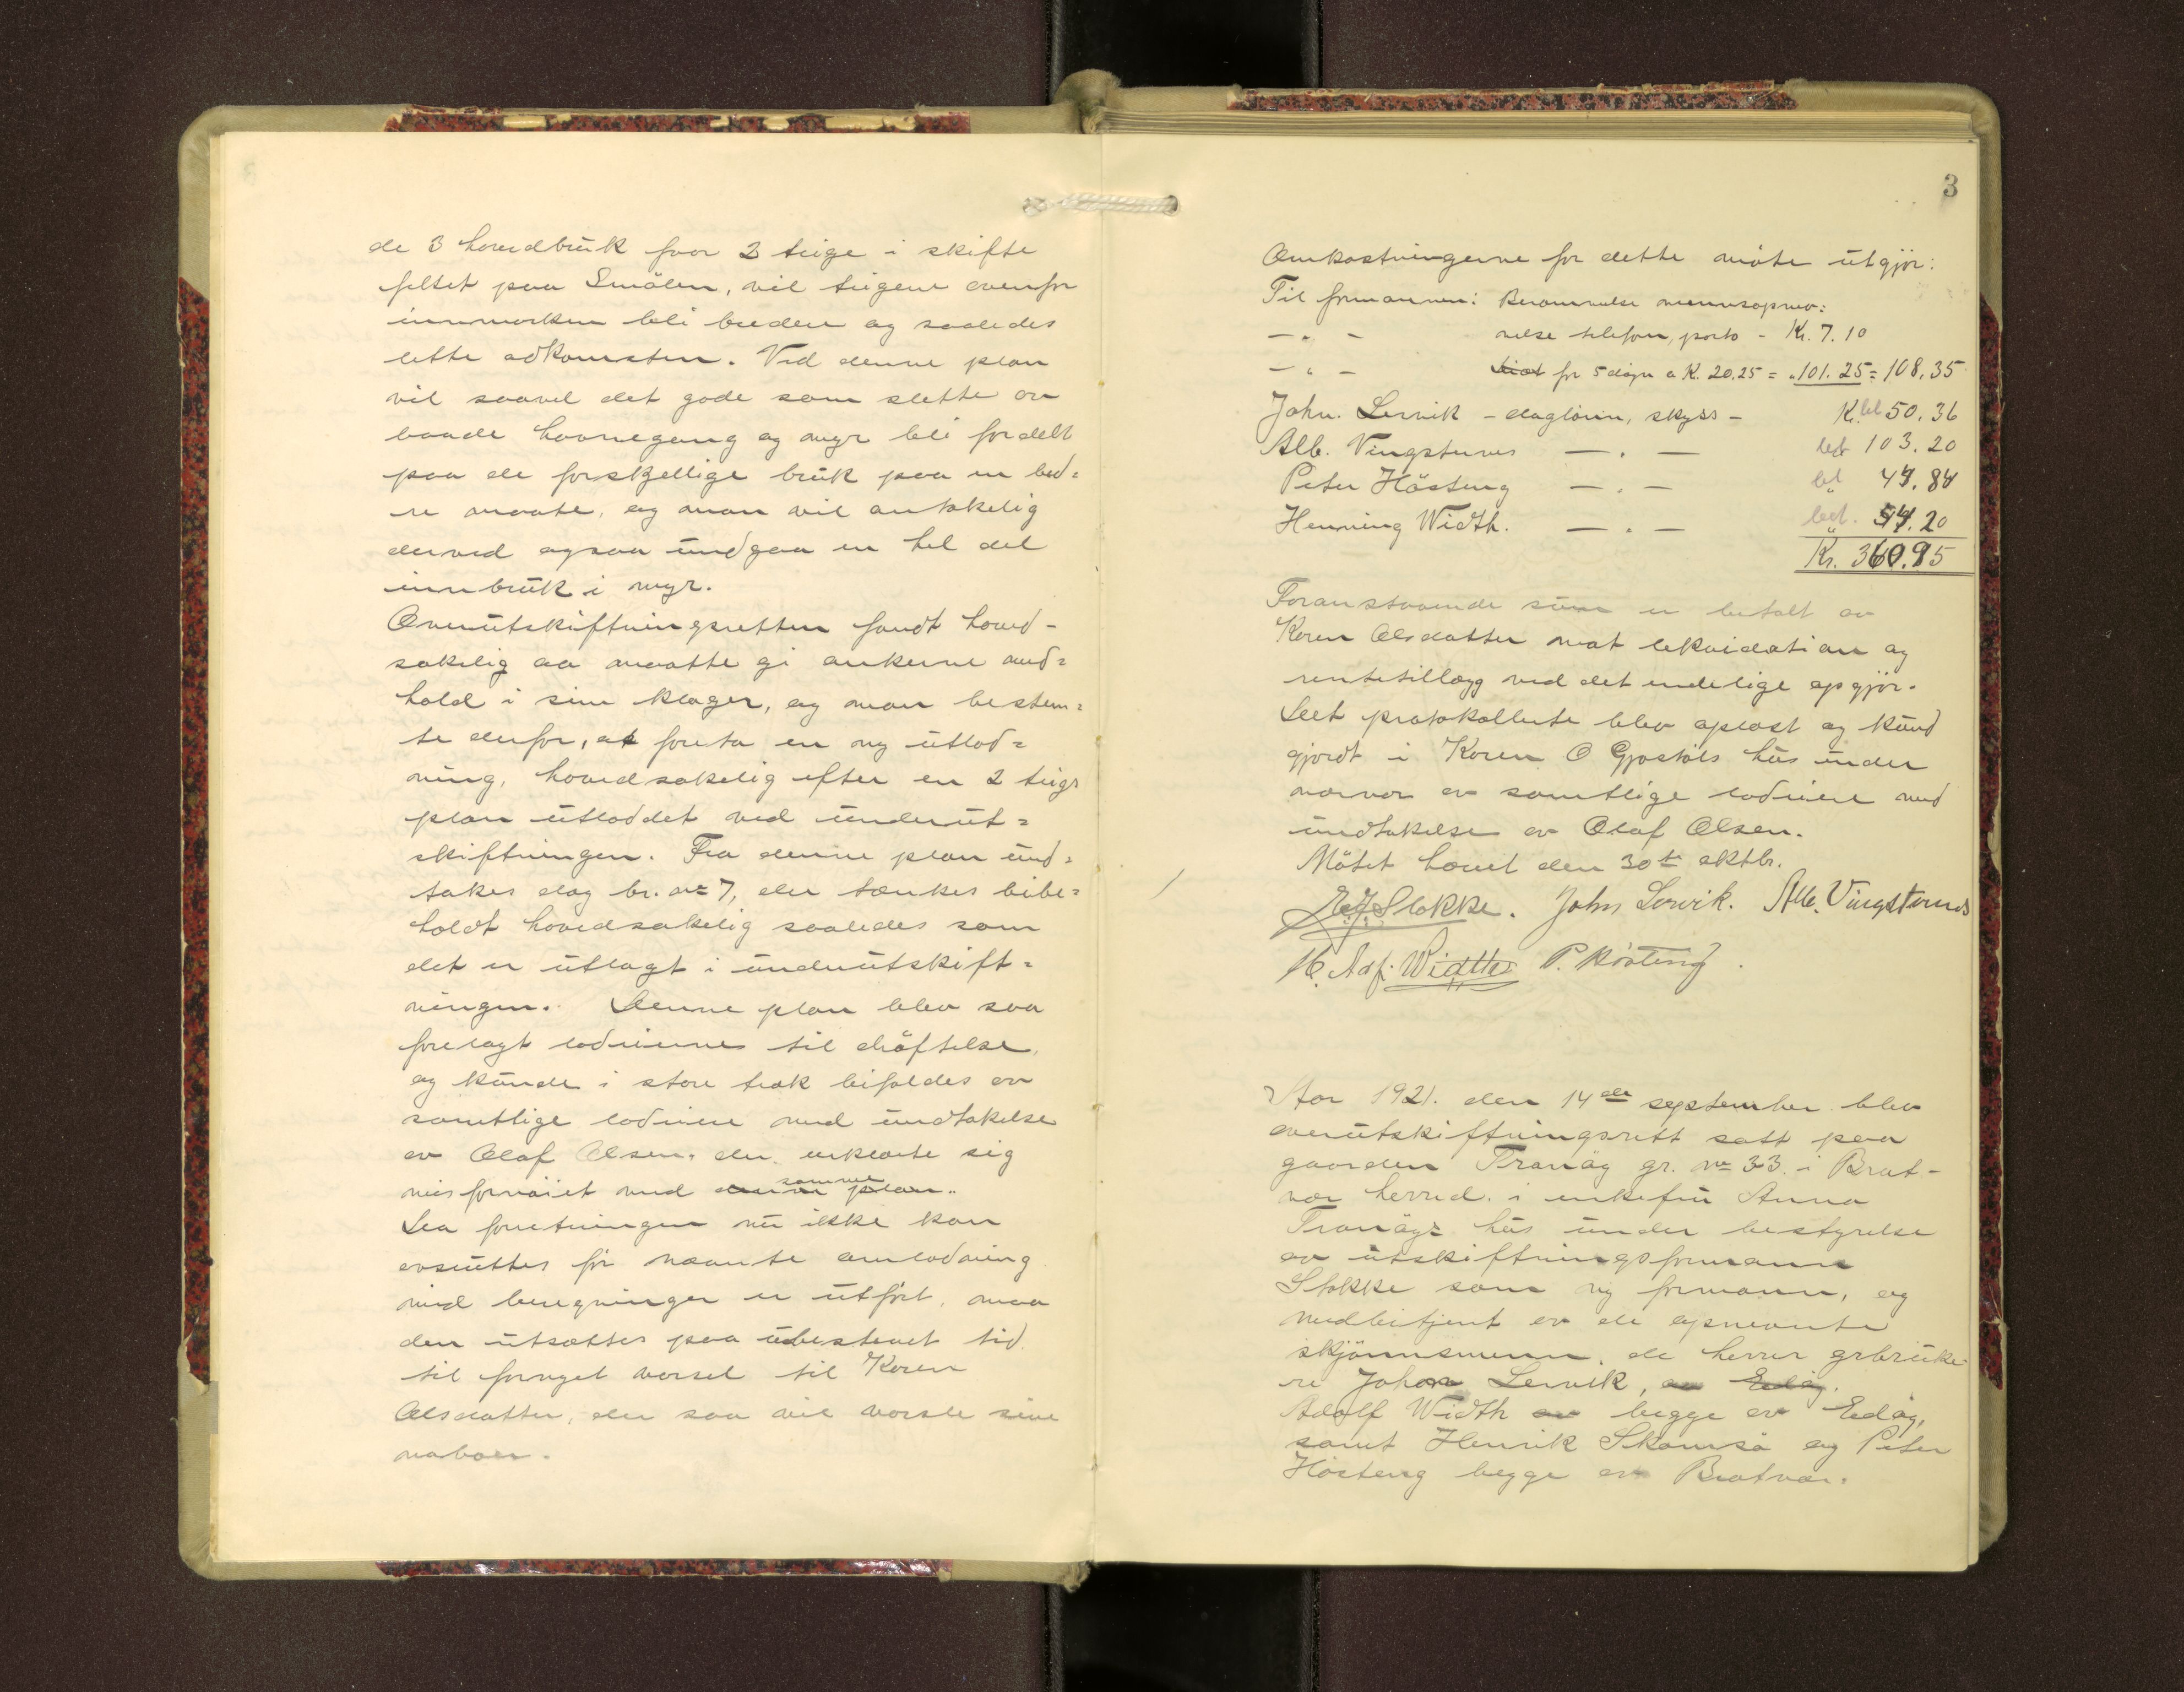 de 3 hovedbruk faar 2 teige i skifte
feltet paa Smölen, vil teigene ovenfor
innmarken bli bredere og saaledes
lette adkomsten. Ved denne plan
vil saavel det gode som slette av
baade havnegang og myr bli fordelt
paa de forskjellige bruk paa en bed=
re maate, og man vil antakelig
derved ogsaa undgaa en hel del
innbruk i myr.
Overutskiftningsretten fandt hoved-
sakelig aa maatte gi ankerne med=
hold i sine klager, og man bestem=
te derfor, at foreta en ny utlod=
ning, hovedsakelig efter en 2 teigs
plan utloddet ved underut=
skiftningen. Fra denne plan und=
takes dog br. nr 7, der tænkes bibe=
holdt hovedsakelig saaledes som
det er utlagt i underutskift=
ningen. Denne plan blev saa
forelagt lodeierne til dröftelse,
og kunde i store træk bifaldes av
samtlige lodeiere med undtakelse
av Olaf Olsen, der erklærte sig
misfornöiet med denne plan. samme
Da forretningen nu ikke kan
avsluttes för nævnte omlodning
med beregninger er utfört, maa
den utsættes paa ubestemt tid
til fornyet varsel til Karen
Olsdatter, der saa vil varsle sine
naboer.
3
Omkostningerne for dette möte utgjör:
Til formannen: Berammelse mennsopnev:
— " — nelse telefon, porto - Kr. 7.10
— " — for 5 dögn a K. 20.25 = " 101.25 = 108.35
John. Lervik - daglönn, skyss - K. bet 50.36
Alb. Vingsternes — " — bet 103.20
Peter Hösteng — " — bet 44.84
Henning Width. — " — bet. 54.20
Kr. 360.95
Foranstaaende sum er betalt av
Karen Olsdatter mot lekvidation og
rentetillægg ved det endelige opgjör.
Det protokollerte blev oplæst og kund
gjordt i Karen O Gjöstöls hus under
nærvær av samtlige lodeiere med
undtakelse av Olaf Olsen.
Mötet hævet den 30te oktbr.
E.J. Slokke. John Lervik. Alb. Vingsternes
H. Adf. Width P. Hösteng.
Aar 1921. den 14de september blev
overutskiftningsrett satt paa
gaarden Tranäg gr. nr 33 i Brat-
vær herred. i enkefru Anna
Tranägs hus under bestyrelse
av utskiftningsformann
Slokke som ny formann, og
medbetjent av de opnevnte
skjönnsmenn, de herrer grbruke
re Johan Lervik, av Edög.
Adolf Width av begge av Edög,
samt Henrik Skomsö og Peter
Hösteng begge av Bratvær.